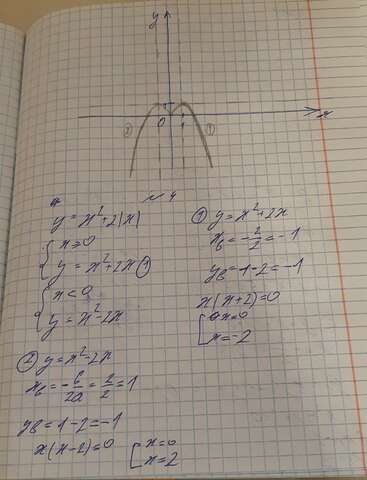 y
1
0 1 x
② ①
№ 4
y = x² + 2|x|
{ x ≥ 0
y = x² + 2x ①
{ x < 0
y = x² - 2x
② y = x² - 2x
xв = -b/2a = 2/2 = 1
yв = 1 - 2 = -1
x(x - 2) = 0 [ x = 0
x = 2
① y = x² + 2x
xв = -2/2 = -1
yв = 1 - 2 = -1
x(x + 2) = 0
[ x = 0
x = -2